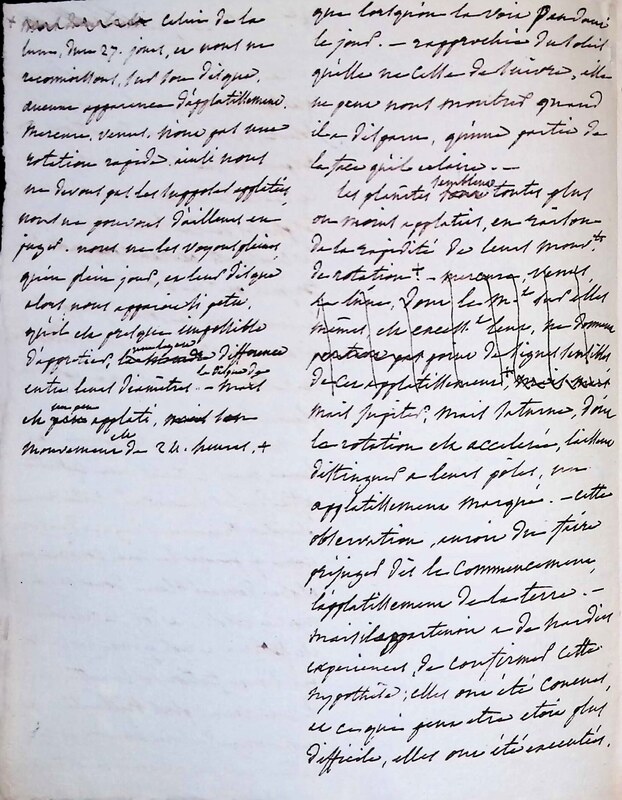 celui de la
lune, dure 27. jours, et nous ne
reconnoissons, sur son disque,
aucune apparence d'applatissement.
mercure, venus, n'ont pas une
rotation rapide. ainsi nous
ne devons pas les supposer applatis,
nous ne pouvons d'ailleurs en
juger. nous ne les voyons pleins,
qu'en plein jour, et leur disque
alors, nous apparoit si petit,
qu'il est presque impossible
d'apprecier, difference
entre leurs diametres. - mars
est un peu applati, son
mouvement est de 24. heures, +
que lorsqu'on la voit pendant
le jour. - rapprochée du soleil
qu'elle ne l'est de la terre, elle
ne peut nous montrer quand
il a disparu, qu'une partie de
la face qu'il eclaire. -
les planetes semblent toutes plus
ou moins applaties, en raison
de la rapidité de leurs mouv.ts
de rotation +. - mercure, venus,
la lune, dont le m.t sur elles
mêmes, est excess.t lent, ne donnent
point de signes sensibles
de cet applatissement +
mais jupiter, mais saturne, dont
la rotation est accelerée, laissent
distinguer a leurs pôles, un
applatissement marqué. - cette
observation, auroit du faire
préjuger dès le commencement,
l'applatissement de la terre. -
mais il appartenoit a de hardies
experiences, de confirmer cette
hypothèse; elles ont été conçues,
et ce qui peut etre etoit plus
difficile, elles ont été executées.